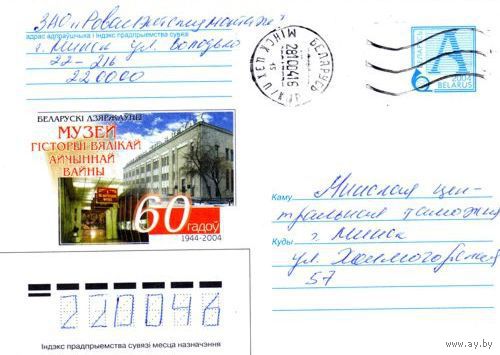 ЗАО
адрас адпраўшчыка і індэкс прадпрыемства сувязі
г. Минск ул. Володько
22-216
220000
БЕЛАРУСЬ
МІНСК
28100416
A
2004
BELARUS
БЕЛАРУСКІ ДЗЯРЖАЎНЫ
МУЗЕЙ
ГІСТОРЫІ ВЯЛІКАЙ
АЙЧЫННАЙ
ВАЙНЫ
60
гадоў
1944-2004
Каму
Минская цен-
тральная таможня
Куды
г. Минск
ул. Хетмогорская
57
220046
Індэкс прадпрыемства сувязі месца назначэння
www.ay.by